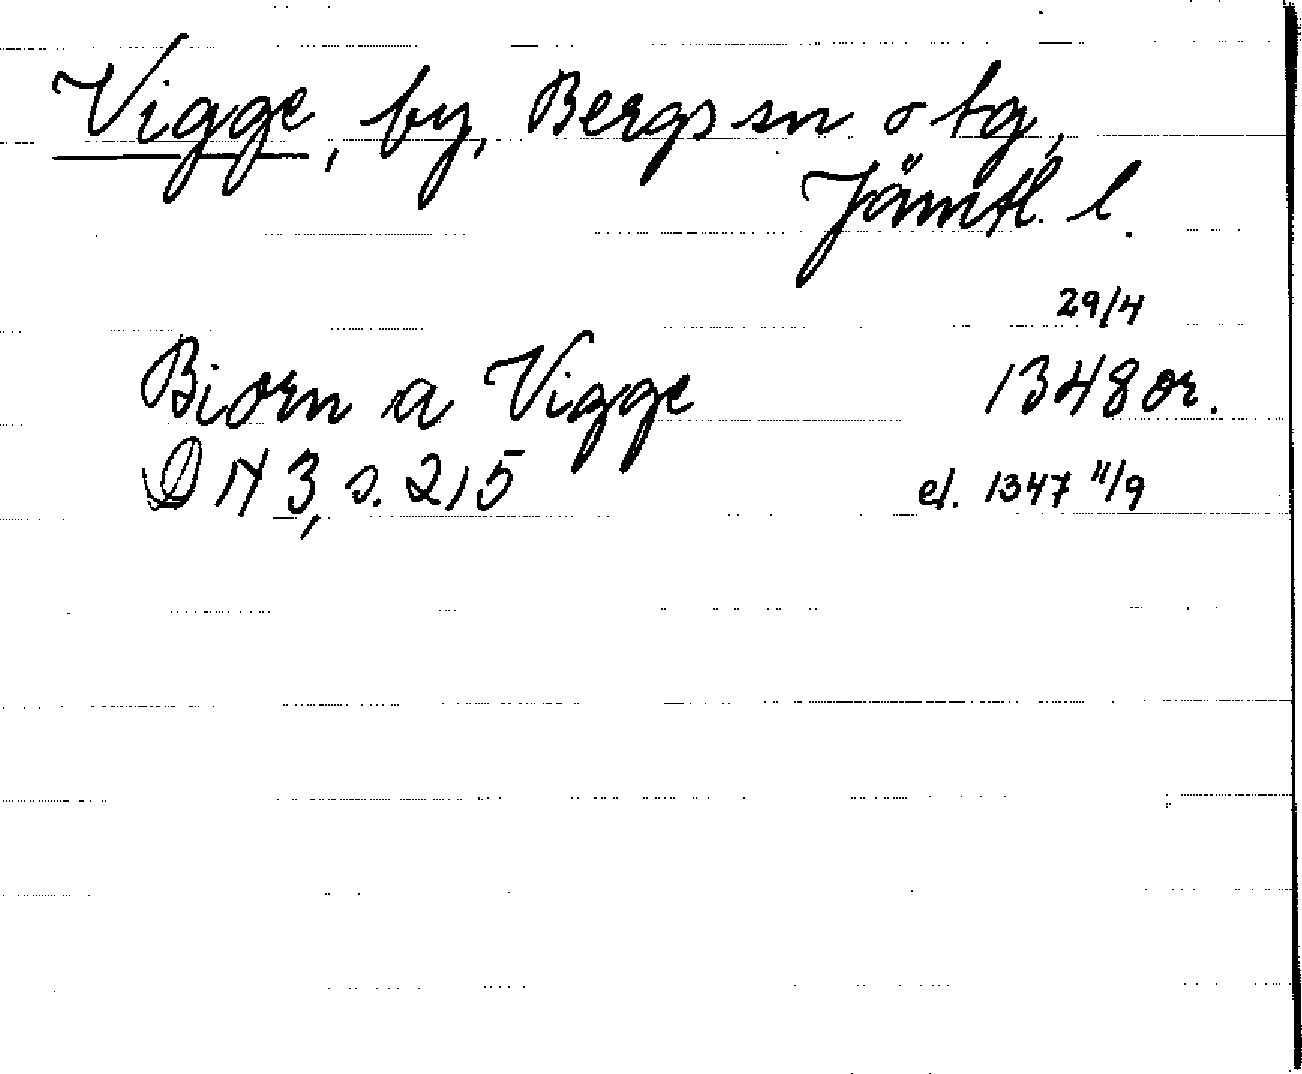 Vigge, by, Bergs sn o tg,
Jämtl. l.
29/4
Biorn a Vigge 1348 or.
DN 3, s. 215 el. 1347 11/9